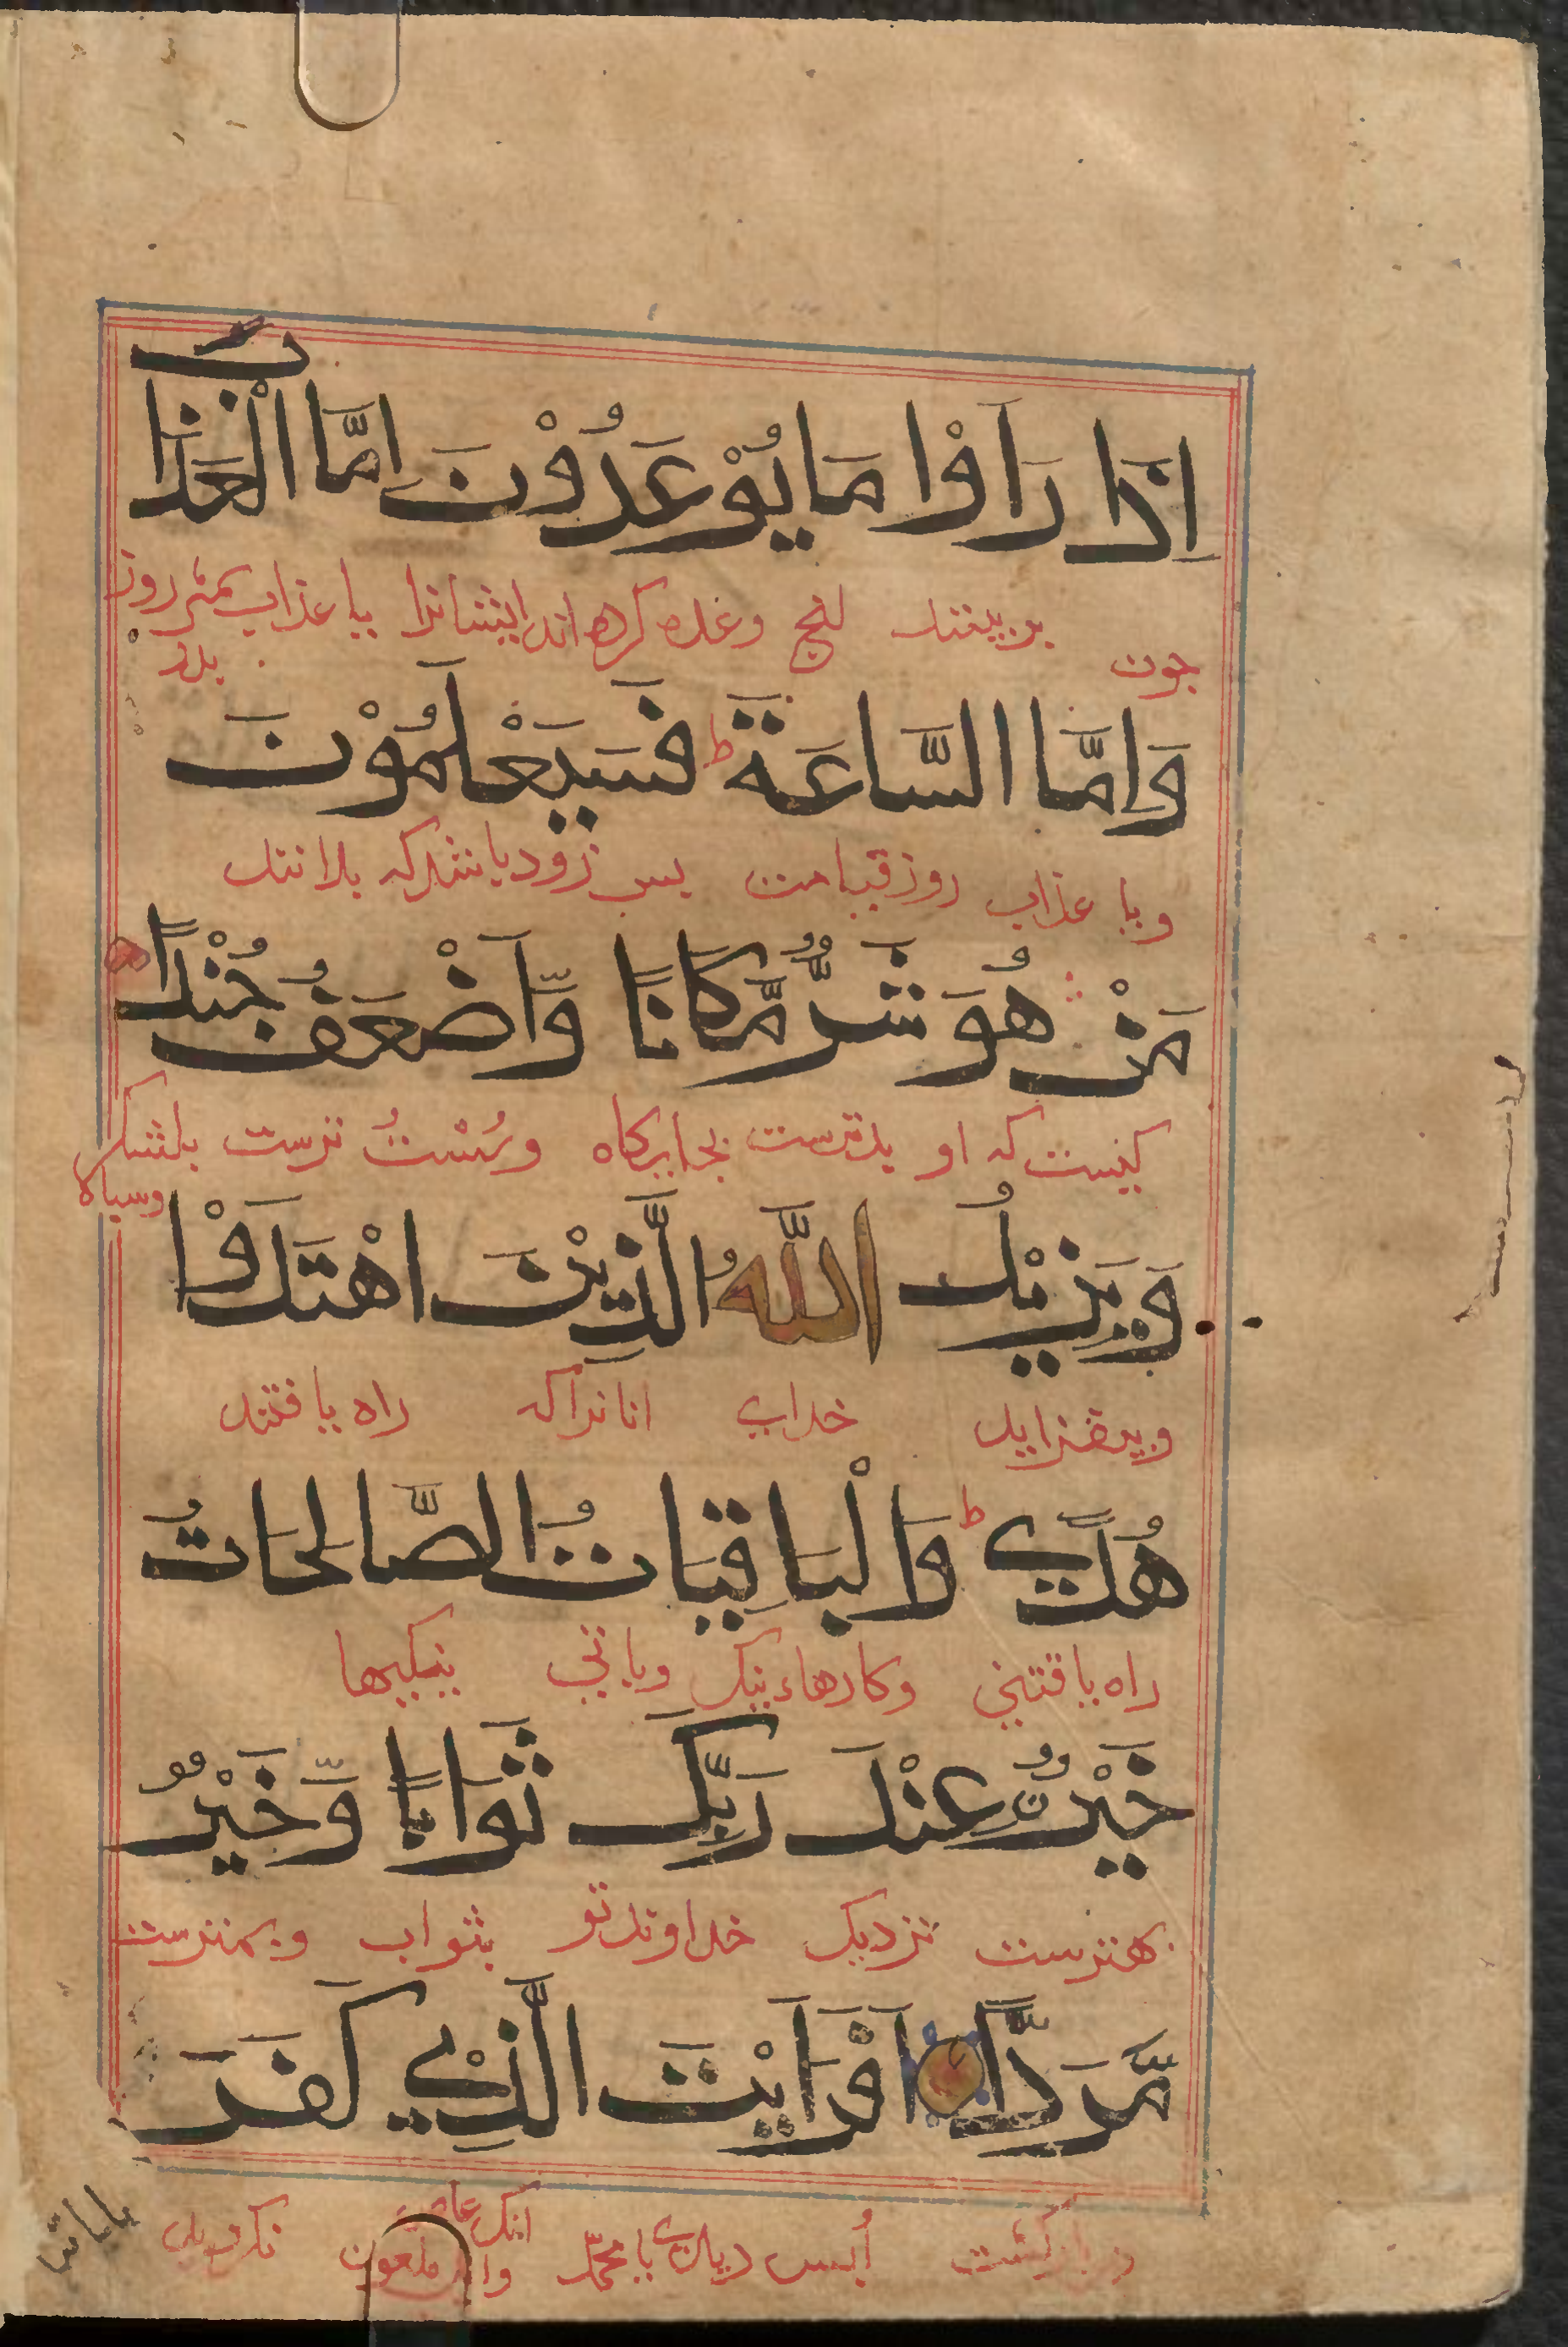 اِذَا رَاَوْا مَا يُوْعَدُوْنَ اِمَّا الْعَذَابَ
جون بربینند انچ وعده کرده اند ایشانرا یا عذاب روز
بدر
وَاِمَّا السَّاعَةَ ط فَسَيَعْلَمُوْنَ
ویا عذاب روز قیامت پس زود باشد که بدانند
مَنْ هُوَ شَرٌّ مَّكَانًا وَّاَضْعَفُ جُنْدًا
کیست که او بدترست بجایکاه وسُسْتُ ترست بلشکر
وسپاه
وَيَزِيْدُ اللّٰهُ الَّذِيْنَ اهْتَدَوْا
وبیفزاید خدای انانرا که راه یافتند
هُدًي ط وَالْبَاقِيَاتُ الصَّالِحَاتُ
راه یافتنی وکارهاء نیک وباقی نیکیها
خَيْرٌ عِنْدَ رَبِّكَ ثَوَابًا وَّخَيْرٌ
بهترست نزدیک خداوند تو بثواب وبهترست
مَّرَدًّا اَفَرَاَيْتَ الَّذِيْ كَفَرَ
بازکشت اُپس دیدی یا محمّد انک عاص
وا ملعون نکروید
بایاتنا